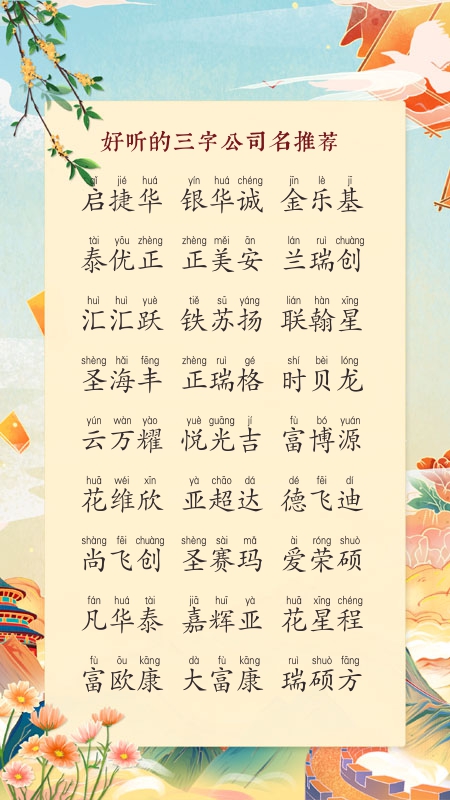 好听的三字公司名推荐
qǐ jié huá yín huá chéng jīn lè jī
启捷华 银华诚 金乐基
tài yōu zhèng zhèng měi ān lán ruì chuàng
泰优正 正美安 兰瑞创
huì huì yuè tiě sū yáng lián hàn xīng
汇汇跃 铁苏扬 联翰星
shèng hǎi fēng zhèng ruì gé shí bèi lóng
圣海丰 正瑞格 时贝龙
yún wàn yào yuè guāng jí fù bó yuán
云万耀 悦光吉 富博源
huā wéi xīn yà chāo dá dé fēi dí
花维欣 亚超达 德飞迪
shàng fēi chuàng shèng sài mǎ ài róng shuò
尚飞创 圣赛玛 爱荣硕
fán huá tài jiā huī yà huā xīng chéng
凡华泰 嘉辉亚 花星程
fù ōu kāng dà fù kāng ruì shuò fāng
富欧康 大富康 瑞硕方